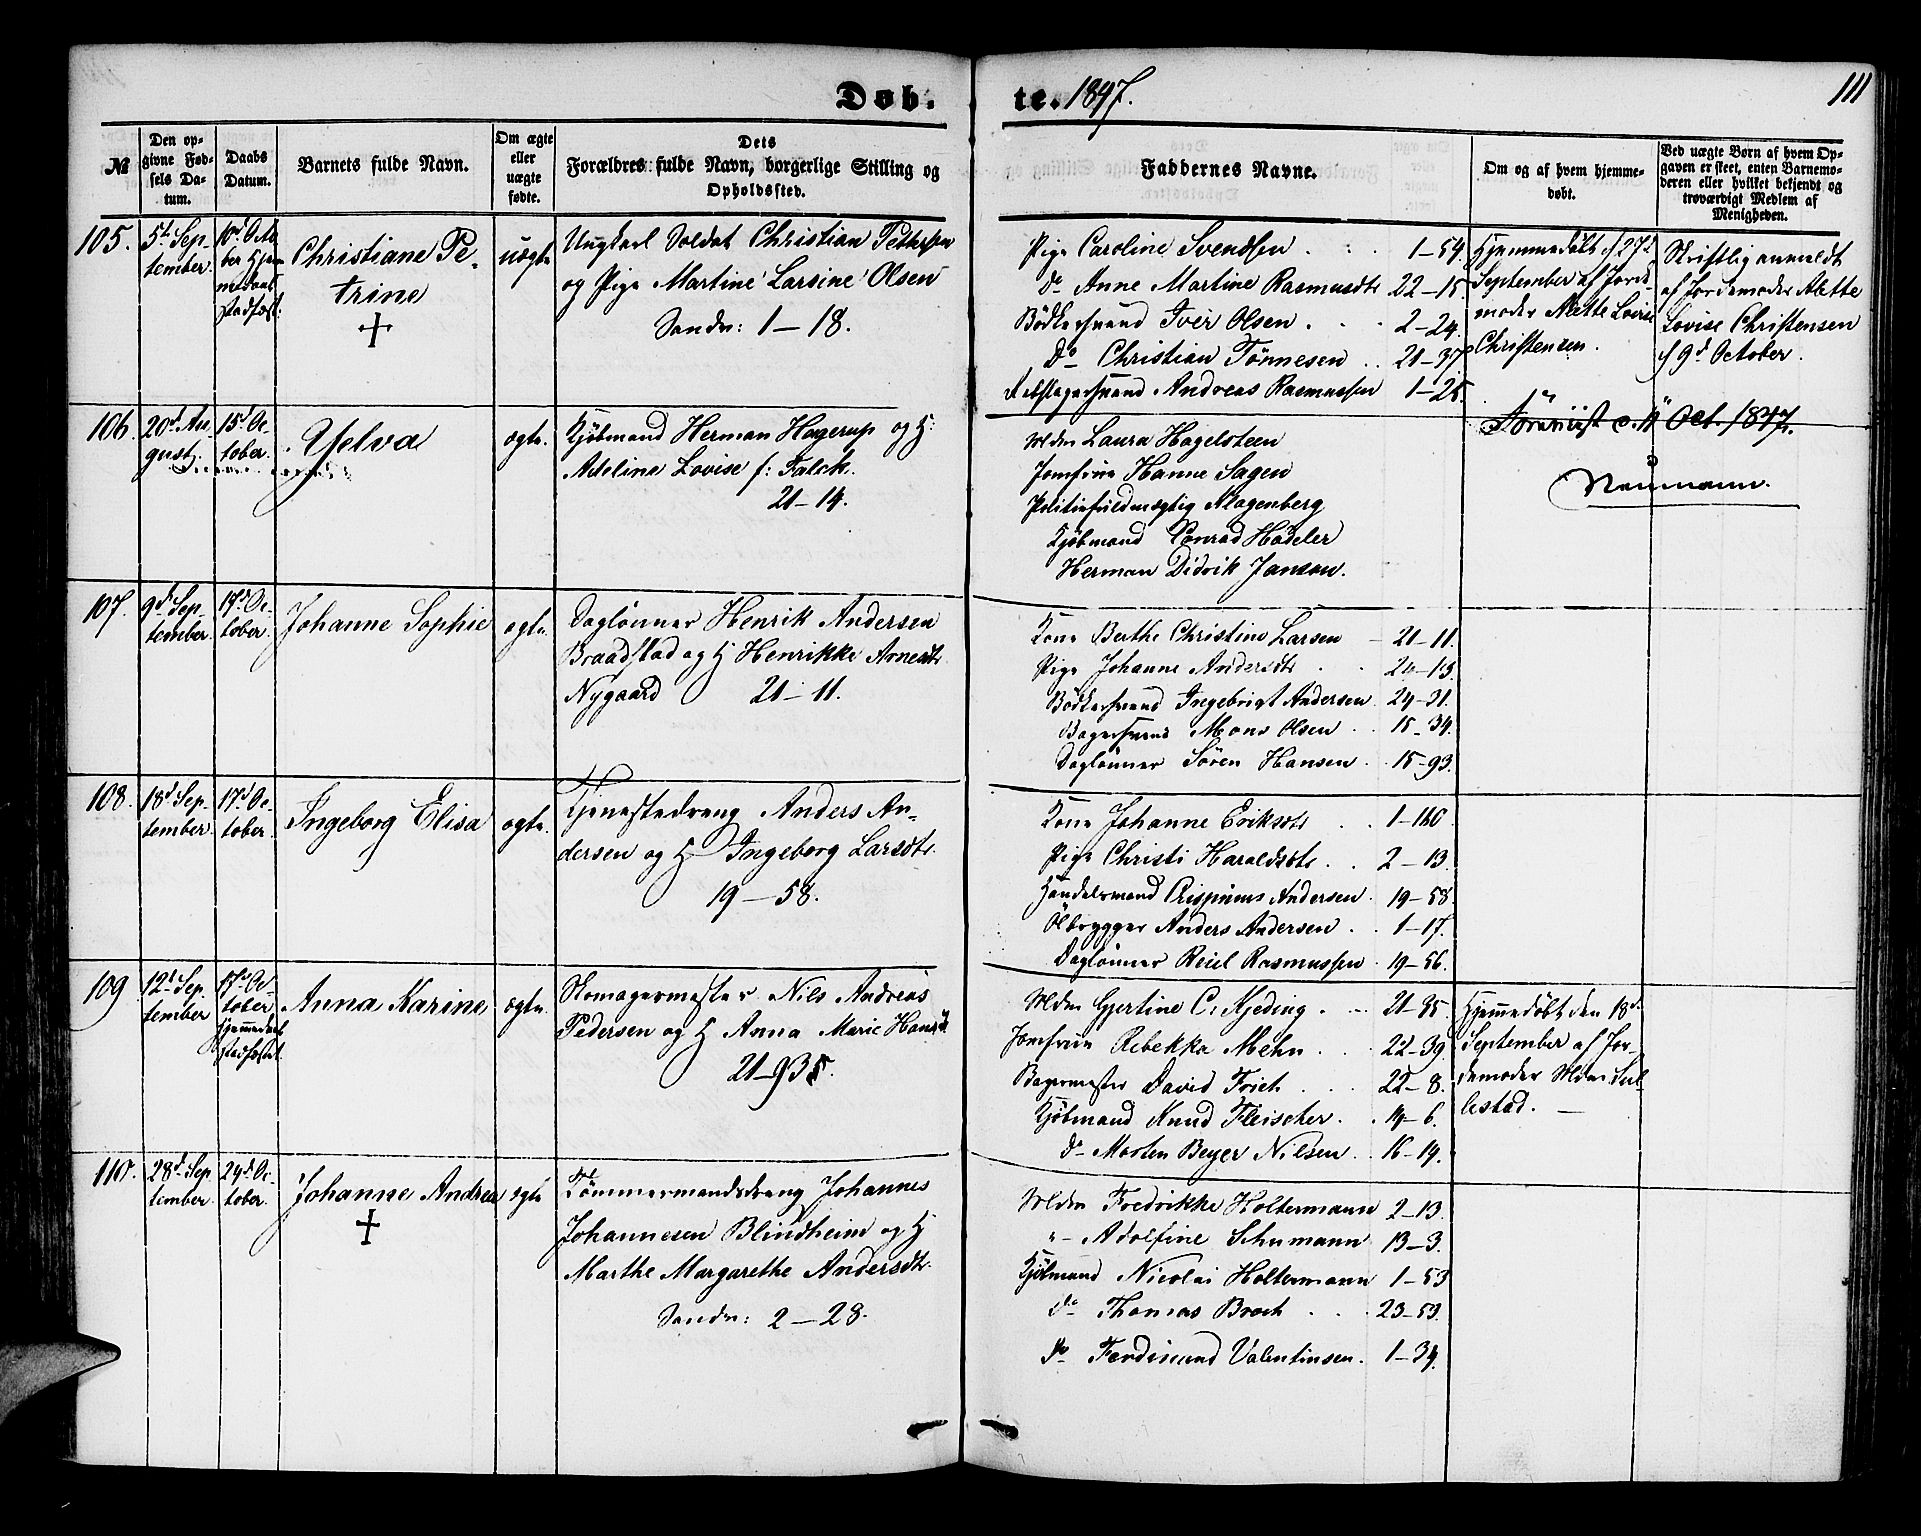 Døb.
te. 1847.
111
№
Den opgivne Fødsels Datum.
Daabs Datum.
Barnets fulde Navn.
Om ægte eller uægte fødte.
Dets Forældres fulde Navn, borgerlige Stilling og Opholdssted.
Faddernes Navne.
Om og af hvem hjemmedøbt.
Ved uægte Børn af hvem Opgaven er skeet, enten Barnemoderen eller hvilket bekjendt og troværdigt Medlem af Menigheden.
105.
5t Sep-
tember.
10d Octo
ber Hjem
medaab
stadfæst:
Christiane Pe-
trine
+
uægte
Ungkarl Soldat Christian Pettersen
og Pige Martine Larsine Olsen
Sandv: 1 — 18.
Pige Caroline Svendsen 1–54.
do Anne Martine Rasmusdtr 22–15
Bödkersvend Iver Olsen 2–24.
Do Christian Tönnesen 21–37
Rebslagersvend Andreas Rasmussen 1–25.
Hjemmedöbt d 27d
September af Jorde-
moder Alette Lovise
Christensen.
Skriftlig anmeldt
af Jordemoder Alette
Lovise Christensen
d 9d October.
106.
20d Au-
gust.
15d Oc-
tober.
Yelva
ægte.
Kjöbmand Herman Hagerup og H:
Adeline Lovise f: Falck.
21–14.
Mdm Laura Hagelsteen
Jomfrue Hanne Sagen
Politiefuldmægtig Klagenberg
Kjöbmand Conrad Hödeler
Herman Didrik Janson.
Oct. 1847.
Neumann.
107.
9d Sep-
tember.
17d Oc-
tober.
Johanne Sophie
ægte.
Daglönner Henrik Andersen
Braadstad og H Henrikke Arnesdtr
Nygaard 21–11.
Kone Berthe Christine Larsen 21–11.
Pige Johanne Andersdtr 24–13
Bödkersvend Ingebrigt Andersen 24–31.
Bagersvend Mons Olsen 15–34.
Daglönner Sören Hansen 15–93.
108.
18d Sep-
tember.
17d Oc-
tober.
Ingeborg Elisa
ægte.
Tjenestedreng Anders An-
dersen og H Ingeborg Larsdtr.
19 — 58.
Kone Johanne Eriksdtr 1–160.
Pige Christi Haraldsdtr. 2–13.
Handelsmand Crispinus Andersen 19–58.
Ölbrygger Anders Andersen 1–17.
Daglönner Reiel Rasmussen 19–56.
109
12d Sep.
tember
17d Oc-
tober
Hjemmedaab
stadfæstet.
Anna Karine
ægte.
Pedersen og H Anna Marie Hansdt.
21–935.
Mdm Gjertine C. Kjeding 21–35
Jomfrue Rebekka Mehn 22–39
Bagermester David Frich 22–8.
Kjöbmand Knud Fleischer 14–6.
Do Morten Beyer Nilsen 16–19.
Hjemmedöbt den 18d
September af Jor-
demoder Mdm Sul-
lestad. —
110.
28d Sep
tember
24d Oc-
tober.
Johanne Andrea
+
ægte
Tömmermandsdreng Johannes
Johannesen Blindheim og H
Marthe Margarethe Andersdtr.
Sandv: 2 — 28.
Mdm Fredrikke Holtermann 2–13.
"– Adolfine Schumann 13–3.
Kjöbmand Nicolai Holtermann 1–53
Do Thomas Broch 23–53.
Do Ferdinand Valentinsen. 1–34.